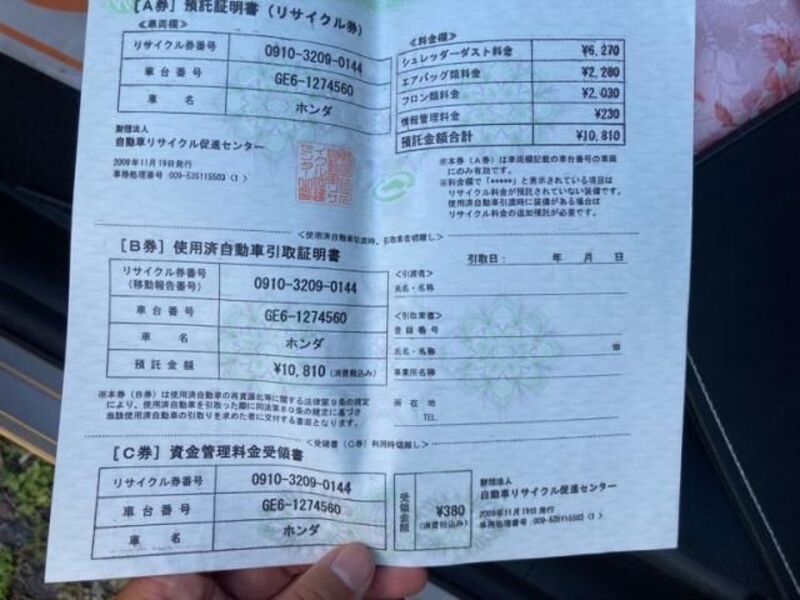 [A券] 預託証明書(リサイクル券)
<車両欄>
リサイクル券番号 0910-3209-0144
車台番号 GE6-1274560
車名 ホンダ
財団法人
自動車リサイクル促進センター
2009年11月19日発行
事務処理番号 :009-535115503 (1)
<料金欄>
シュレッダーダスト料金 ¥6,270
エアバッグ類料金 ¥2,280
フロン類料金 ¥2,030
情報管理料金 ¥230
預託金額合計 ¥10,810
※本券(A券)は車両欄記載の車台番号の車両
にのみ有効です。
※料金欄で「*****」と表示されている項目は
リサイクル料金が預託されていない装備です。
使用済自動車引渡時に装備がある場合は
リサイクル料金の追加預託が必要です。
<使用済自動車引取時、引取業者切離し>
[B券] 使用済自動車引取証明書
リサイクル券番号
(移動報告番号) 0910-3209-0144
車台番号 GE6-1274560
車名 ホンダ
預託金額 ¥10,810 (消費税込み)
※本券(B券)は使用済自動車の再資源化等に関する法律第9条の規定
により、使用済自動車を引取った際に同法第80条の規定に基づき
当該使用済自動車の引取りを求めた者に交付する書面となります。
引取日: 年 月 日
<引渡者>
氏名・名称
<引取業者>
登録番号
氏名・名称 ㊞
事業所名称
所在地
TEL
<受領書(C券)利用時切離し>
[C券] 資金管理料金受領書
リサイクル券番号 0910-3209-0144
車台番号 GE6-1274560
車名 ホンダ
受領金額 ¥380
(消費税込み)
財団法人
自動車リサイクル促進センター
2009年11月19日発行
事務処理番号 :009-535115503 (1)